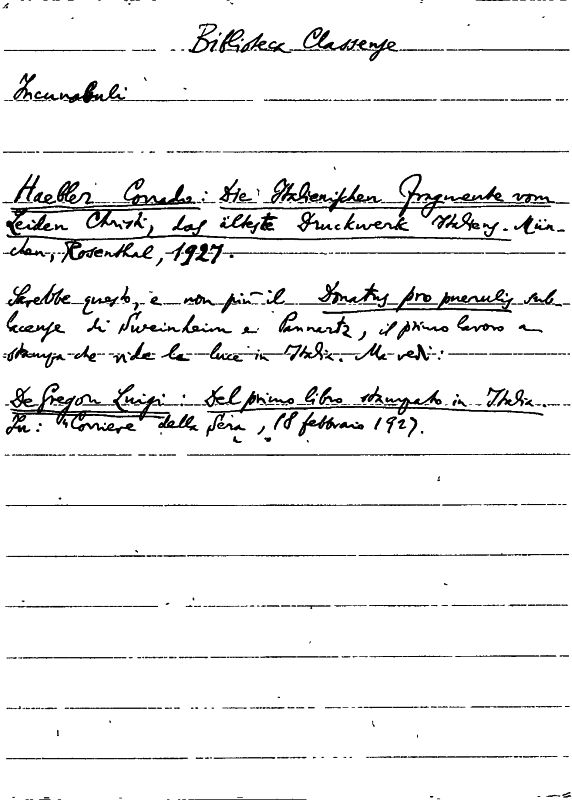 Biblioteca Classense
Incunabuli
Haebler Corrado: Die Italienischen Fragmente vom
Leiden Christi, das älteste Druckwerk Italiens. Mün-
chen, Rosenthal, 1927.
Sarebbe questo, e non più il Donatus pro puerulis sub-
lacense di Sweinheim e Pannartz, il primo lavoro a
stampa che vide la luce in Italia. Ma vedi:
De Gregori Luigi: Del primo libro stampato in Italia.
In: "Corriere della Sera", 18 febbraio 1927.